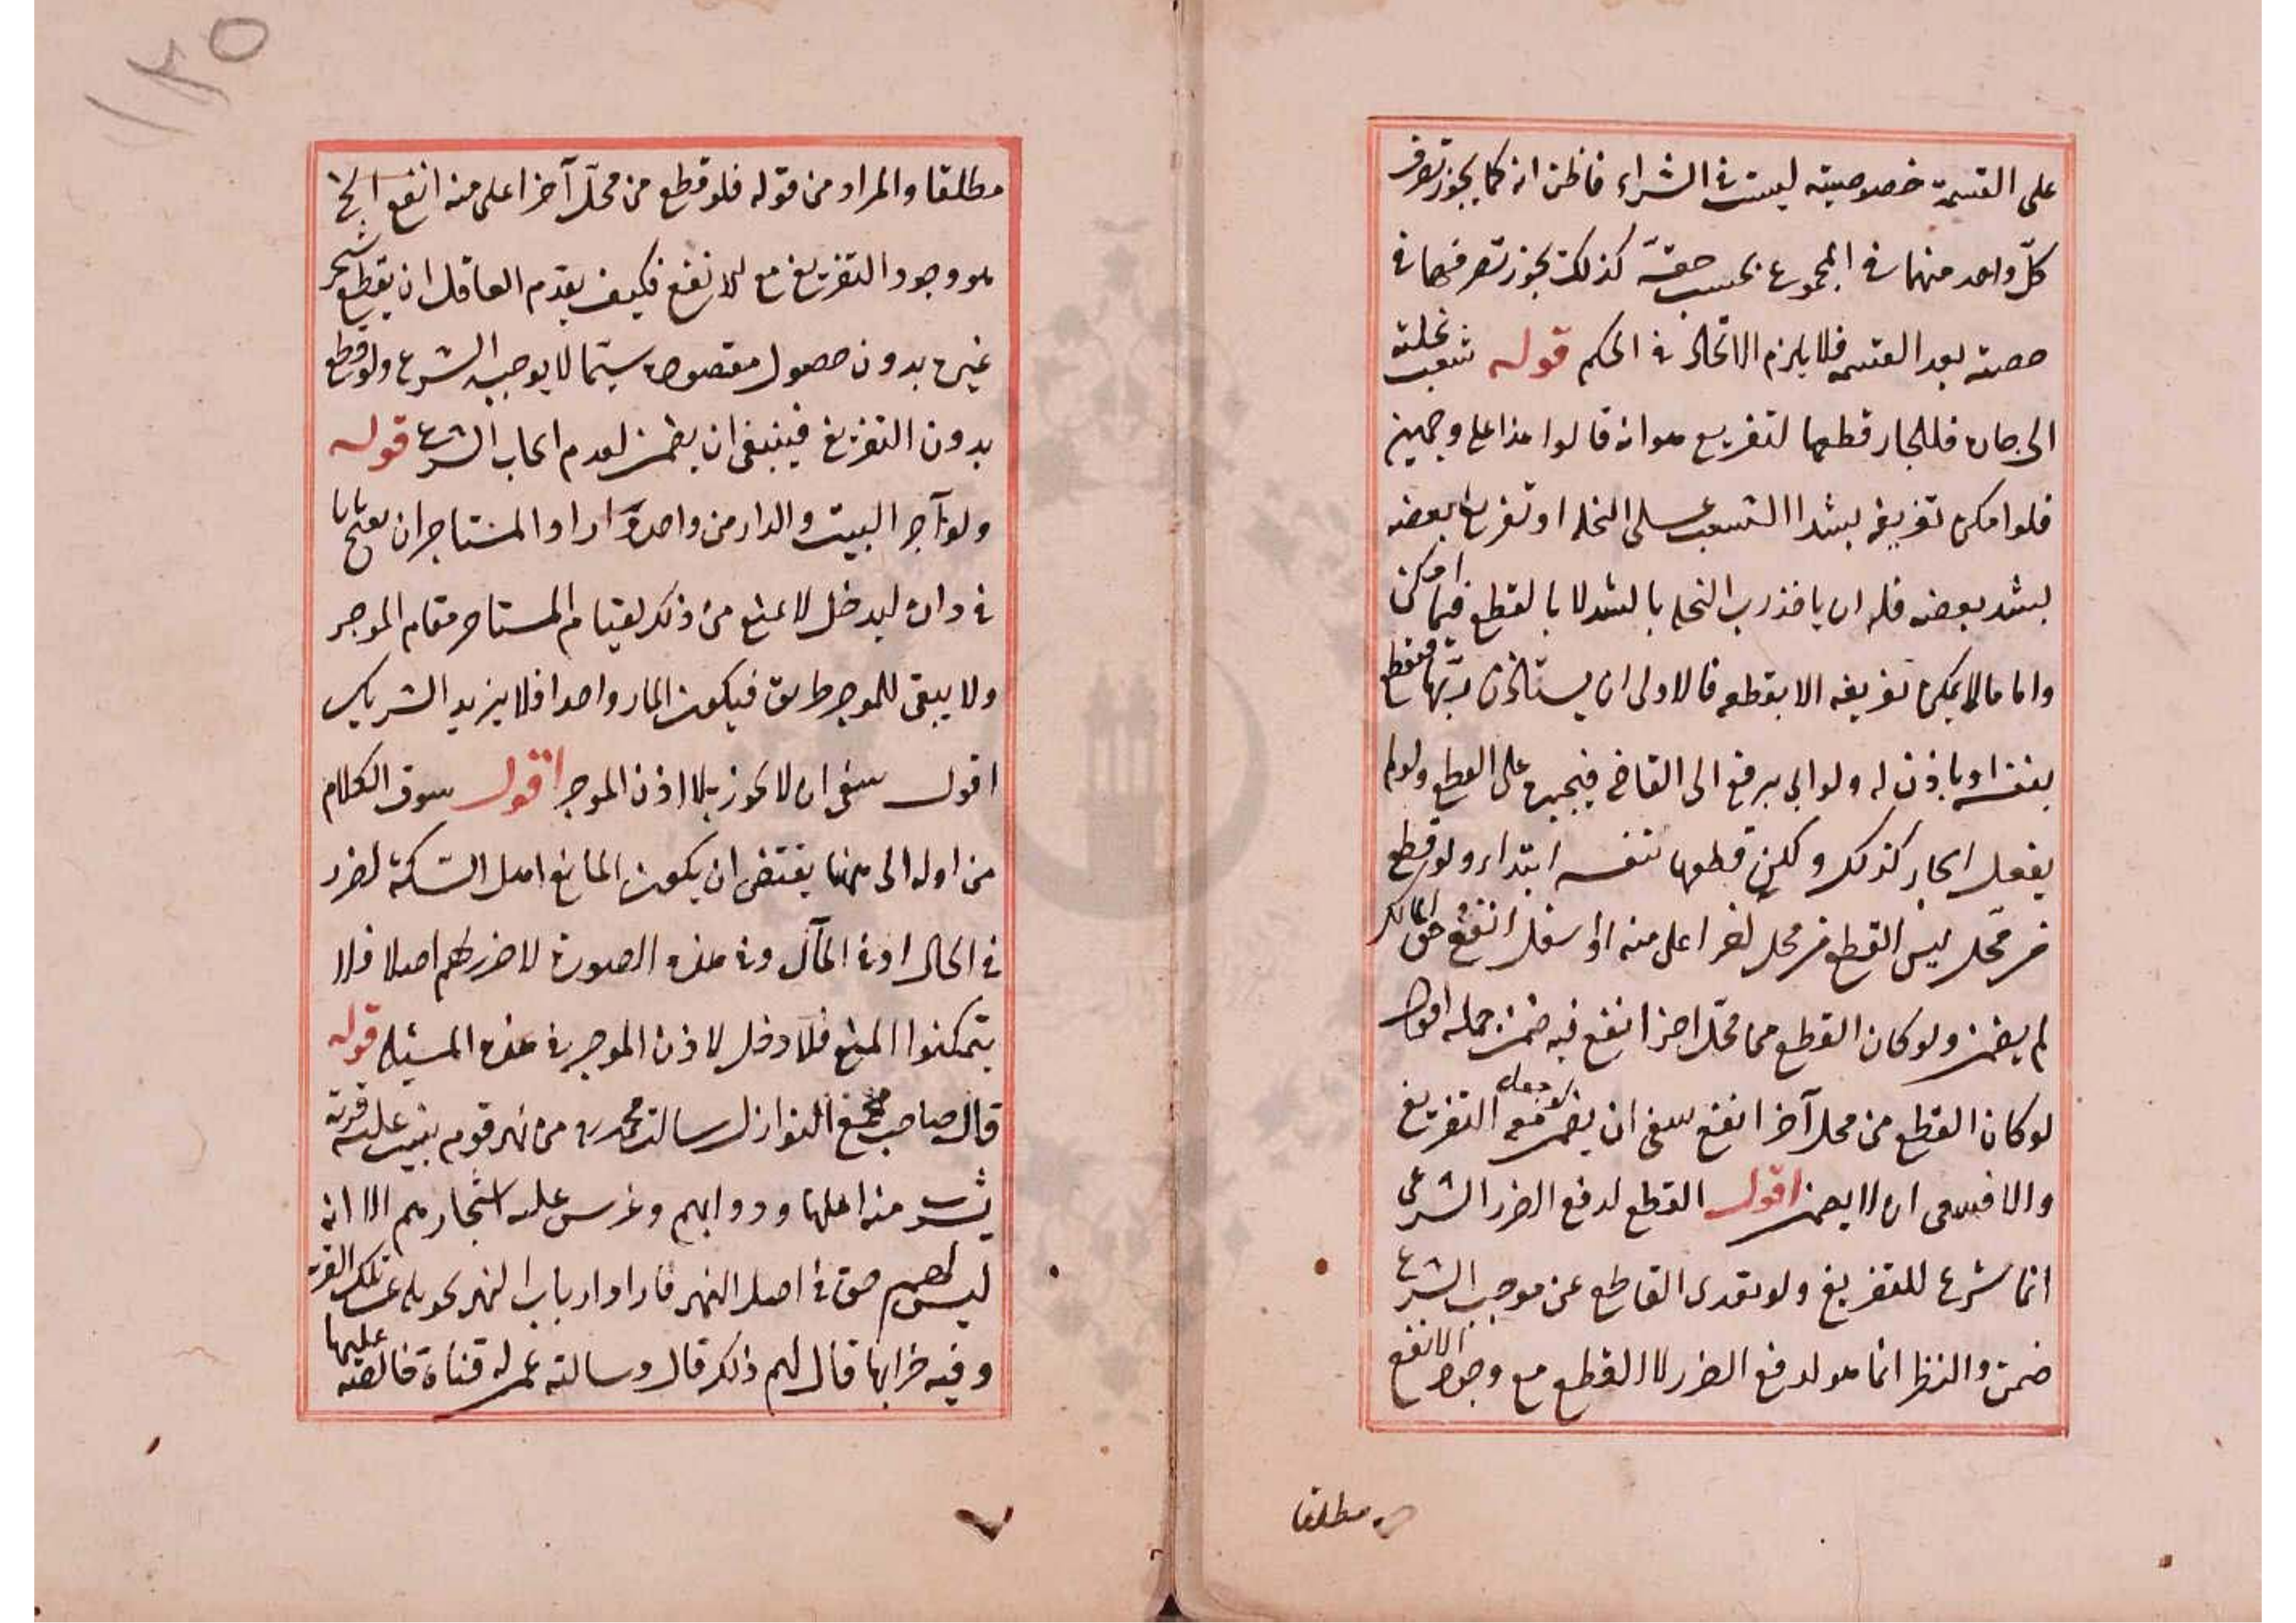 على القسمة خصوصيته ليست في الشراء فاظن انه كما يجوز تصرف
كلّ واحد منهما في المجموع بحسب حقه كذلك يجوز تصرفهما في
حصته بعد القسمه فلا يلزم الاتحاد في الحكم قوله شعب نخلته
الى جاره فللجار قطعها لتفريع هوانه قالوا هذا على وجهين
فلو امكن تفريغه بشد الشعب على النخله او تفريغ بعضه
بشد بعضه فله ان ياخذ رب النخله بالشد لا بالقطع فيما امكن
واما ما لا يمكن تفريغه الا بقطعه فالاولى ان يستأذن ربّها فيقطع
بنفسه او ياذن له ولو ابى يرفع الى القاضي فيجبره على القطع ولو لم
يفعل الجار كذلك ولكن قطعها بنفسه ابتداء ولو قطع
من محّل ليس القطع من محل اخر اعلى منه او اسفل انفع في حق المالك
لم يضمن ولو كان القطع مما محّل اخر انفع فيه ضمن جمله اقول
لو كان القطع من محل آخر انفع ينبغي ان يضمن لو جعله معه التفريغ
والا فينبغي ان لا يضمن اقول القطع لدفع الضرر الشرعي
انما شرع للتفريغ ولو تعدى القاطع عن موجب الشرع
ضمن والنظر انما هو لدفع الضرر لا القطع مع وجود الانفع
مطلقا
١٢٥
مطلقا والمراد من قوله فلو قطع من محلّ آخر اعلى منه انفع الخ
هو وجود التفريغ مع الانفع فكيف يقدم العاقل ان يقطع شجر
غيره بدون حصول مقصوده سيّما لا يوجبه الشرع ولو قطع
بدون التفريغ فينبغي ان يضمن لعدم ايجاب الشرع قوله
ولو آجر البيت والدار من واحد واراد المستاجر ان يفتح بابا
في داره ليدخل لا يمنع من ذلك لقيام المستاجر مقام الموجر
ولا يبقى للموجر طريق فيكون المار واحدا فلا يزيد الشريك
اقول ينبغي ان لا يجوز بلا اذن الموجر اقول سوق الكلام
من اوله الى هنا يقتضي ان يكون المانع اهل السّكة لضرر
في الحال او في المآل وفي هذه الصورة لا ضرر لهم اصلا فلا
يتمكنوا المنع فلا دخل لاذن الموجر في هذه المسئله قوله
قال صاحب مجمع النوازل سالت محمد ره من نهر قوم بنيت عليه قرية
يشرب منه اهلها ودوابهم وغرس عليه اشجارهم الا انه
ليس لهم حق في اصل النهر فاراد ارباب النهر تحويله عن تلك القرية
وفيه خرابها قال لهم ذلك قال وسالته عمن له قناة خالصة عليها